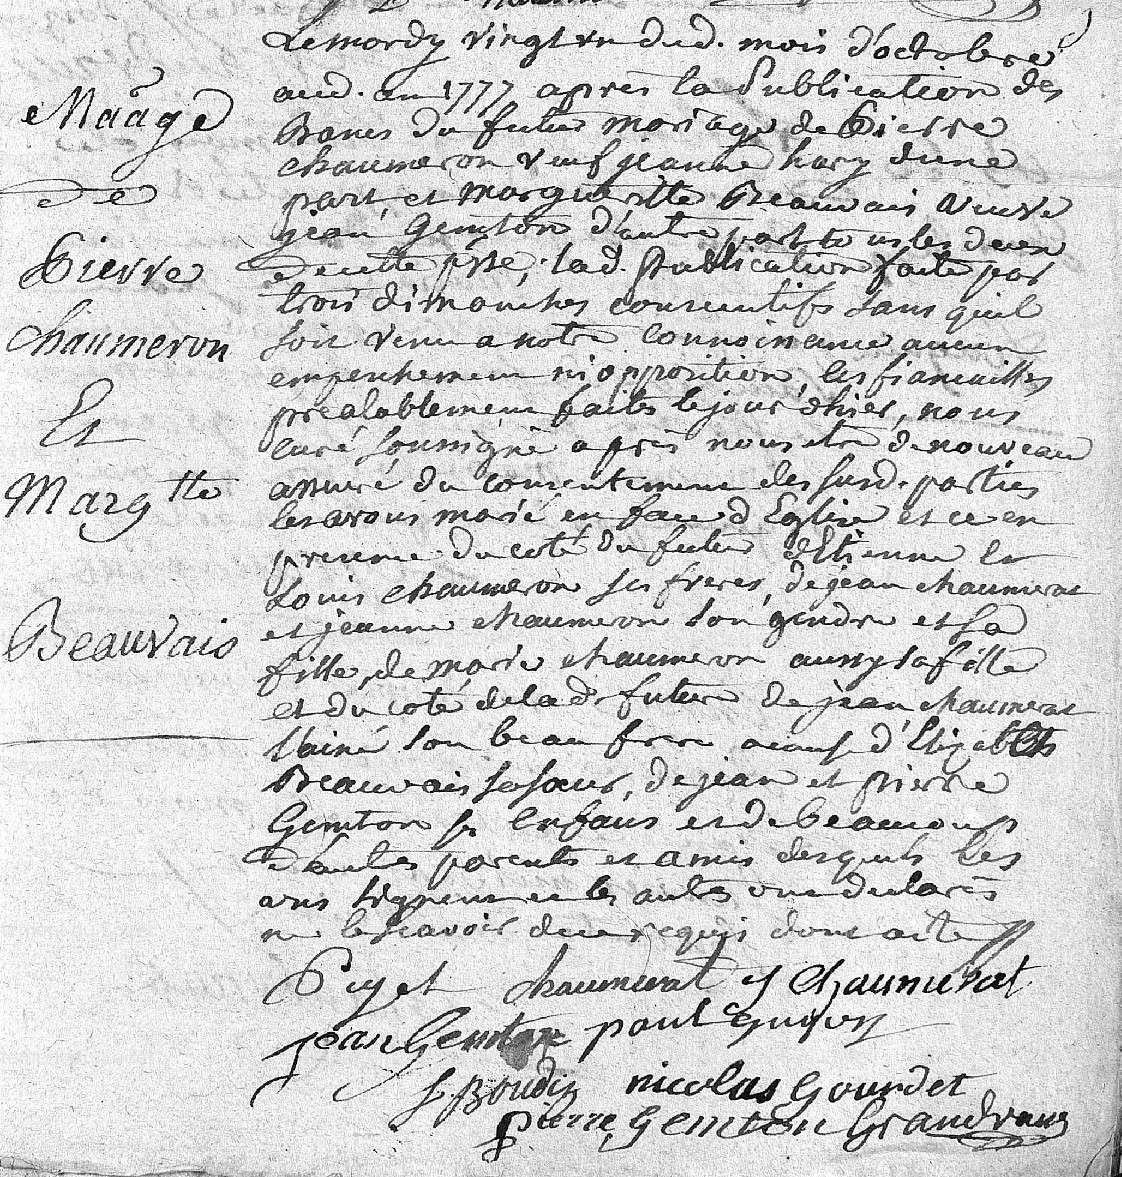 Maage
de
Pierre
chaumeron
Et
Margtte
Beauvais
Lemardy vingt un dud. mois d'octobre
aud. an 1777 après la Publication des
Bancs du futur mariage de Pierre
chaumeron veuf jeanne hary d'une
part, et margueritte Beauvais veuve
jean Gemton d'autre part tous les deux
de cette psse, lad. Publication faite par
trois dimanches consecutifs sans quil
soit venu a notre connoissance aucun
empechement ni opposition, les fiancailles
prealablement faites le jour d'hier, nous
curé soussigné apres nous etre de nouveau
assuré du consentement des susd. parties
les avons marié en face d'Eglise et ce en
presence du coté du futur d'Etienne et
Louis chaumeron ses freres, de jean chaumerat
et jeanne chaumeron son gendre et sa
fille, de marie chaumeron aussy sa fille
et du coté de lad. future de jean chaumerat
l'ainé son beau frere a cause d'Elizabeth
Beauvais sa sœur, de jean et pierre
Gemton ses enfans et de beaucoup
d'autes parents et amis desquels les
uns signent et les autes ont declarés
ne le scavoir de ce requis dont acte
Piget chaumerat J chaumerat
jean Gemton paul
J Boudin nicolas Gourdet
pierre Gemton Grand